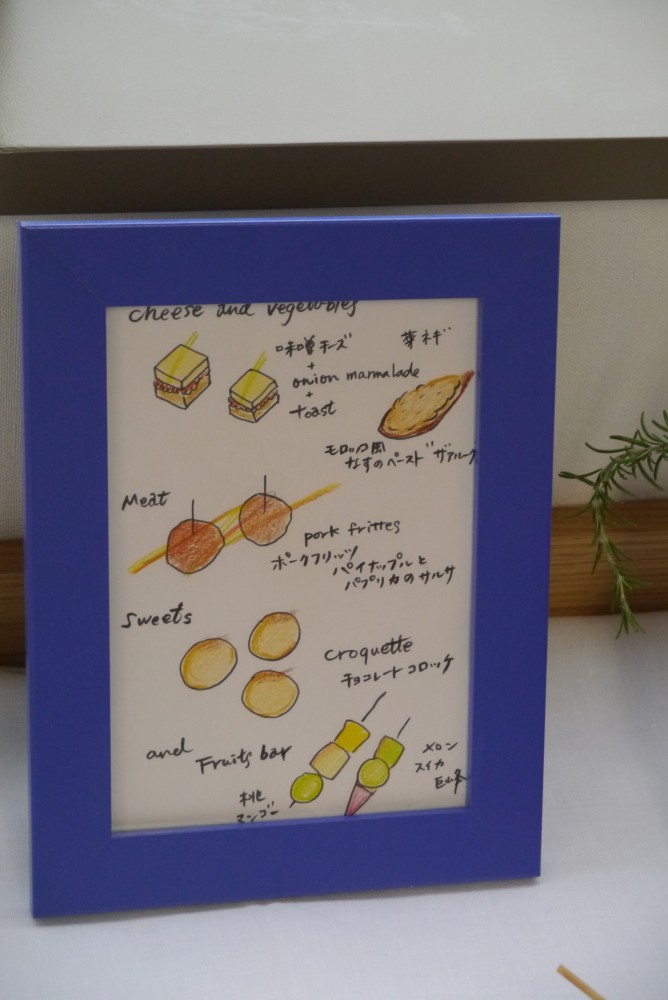 cheese and vegetables
味噌チーズ
+
onion marmalade
+
toast
芽ネギ
モロッコ風
なすのペースト ザアルーク
Meat
pork frittes
ポークフリッツ
パイナップルと
パプリカのサルサ
Sweets
croquette
チョコレートコロッケ
and Fruits bar
桃
マンゴー
メロン
スイカ
巨峰